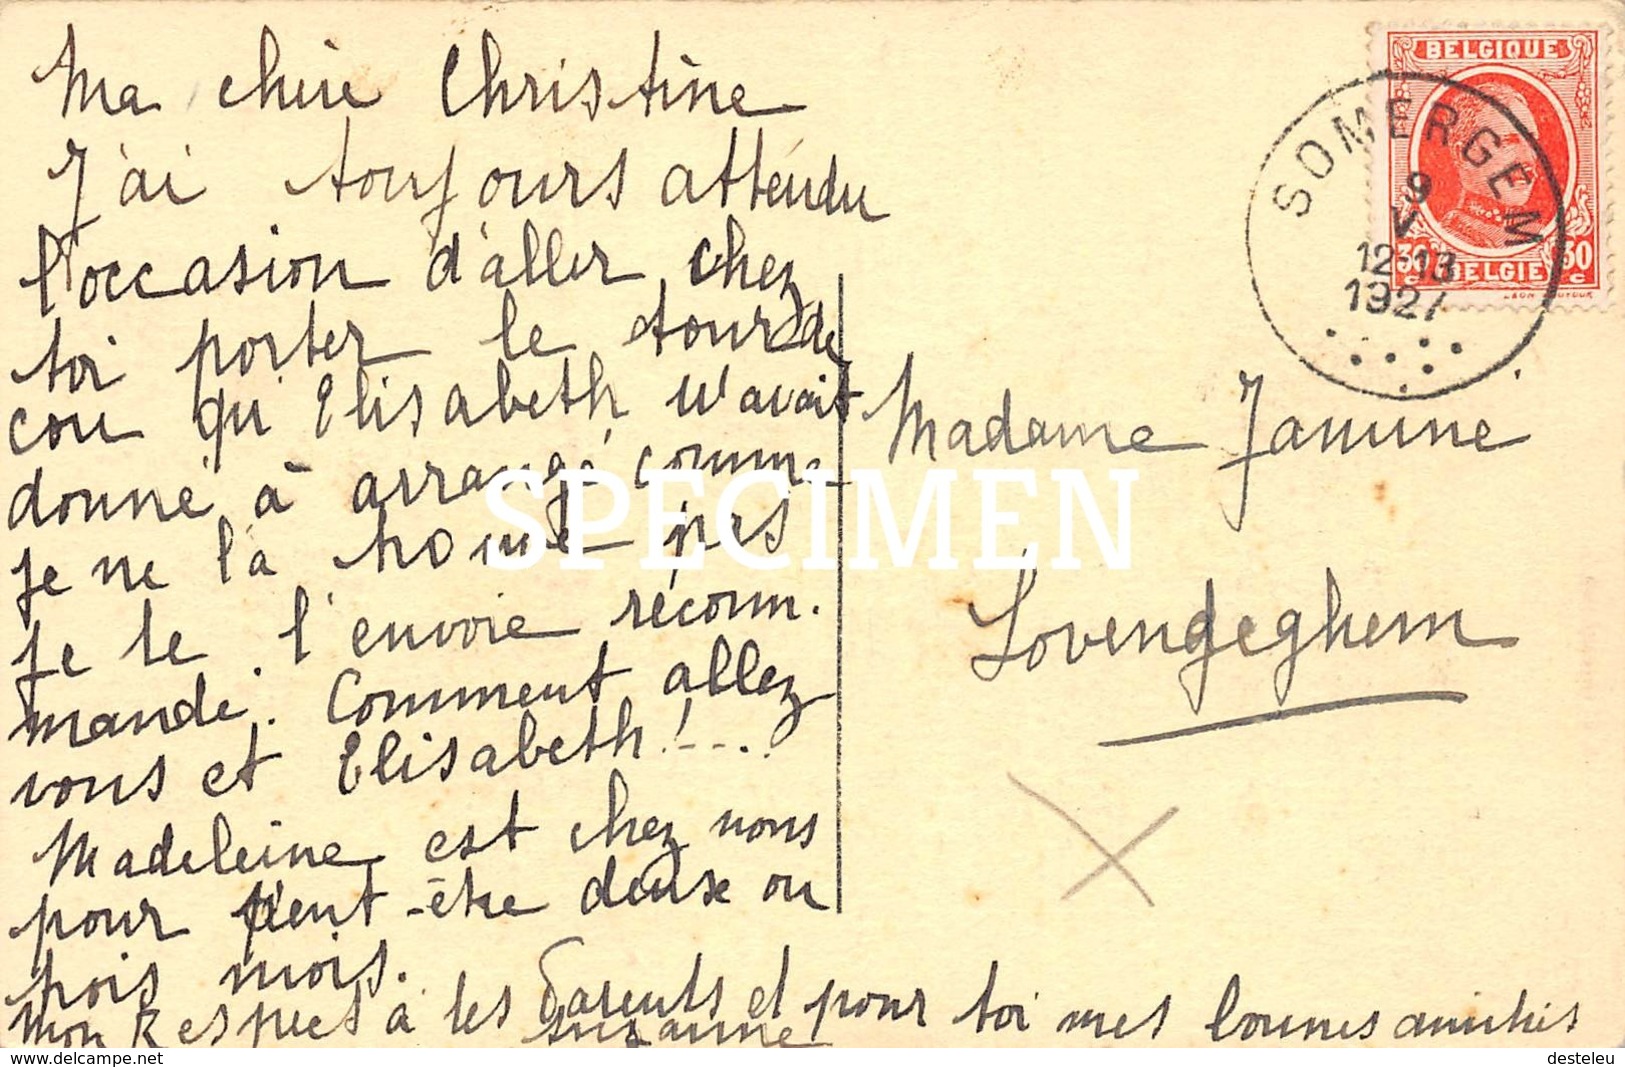 Ma chère Christine
J'ai toujours attendu
l'occasion d'aller chez
toi porter le tour de
cou qu'Elisabeth m'avait
donné à arrangé comme
je ne la trouve pas
je te l'envoie récom.
mandé. Comment allez
vous et Elisabeth!....
Madeleine est chez nous
pour peut-être deux ou
trois mois.
Mon Respect à tes Parents et pour toi mes bonnes amitiés
Suzanne
BELGIQUE
30 30
C C
BELGIE
SOMERGEM
9
V
12-13
1927
Madame Janine
Lovendegehem
SPECIMEN
www.delcampe.net
desteleu